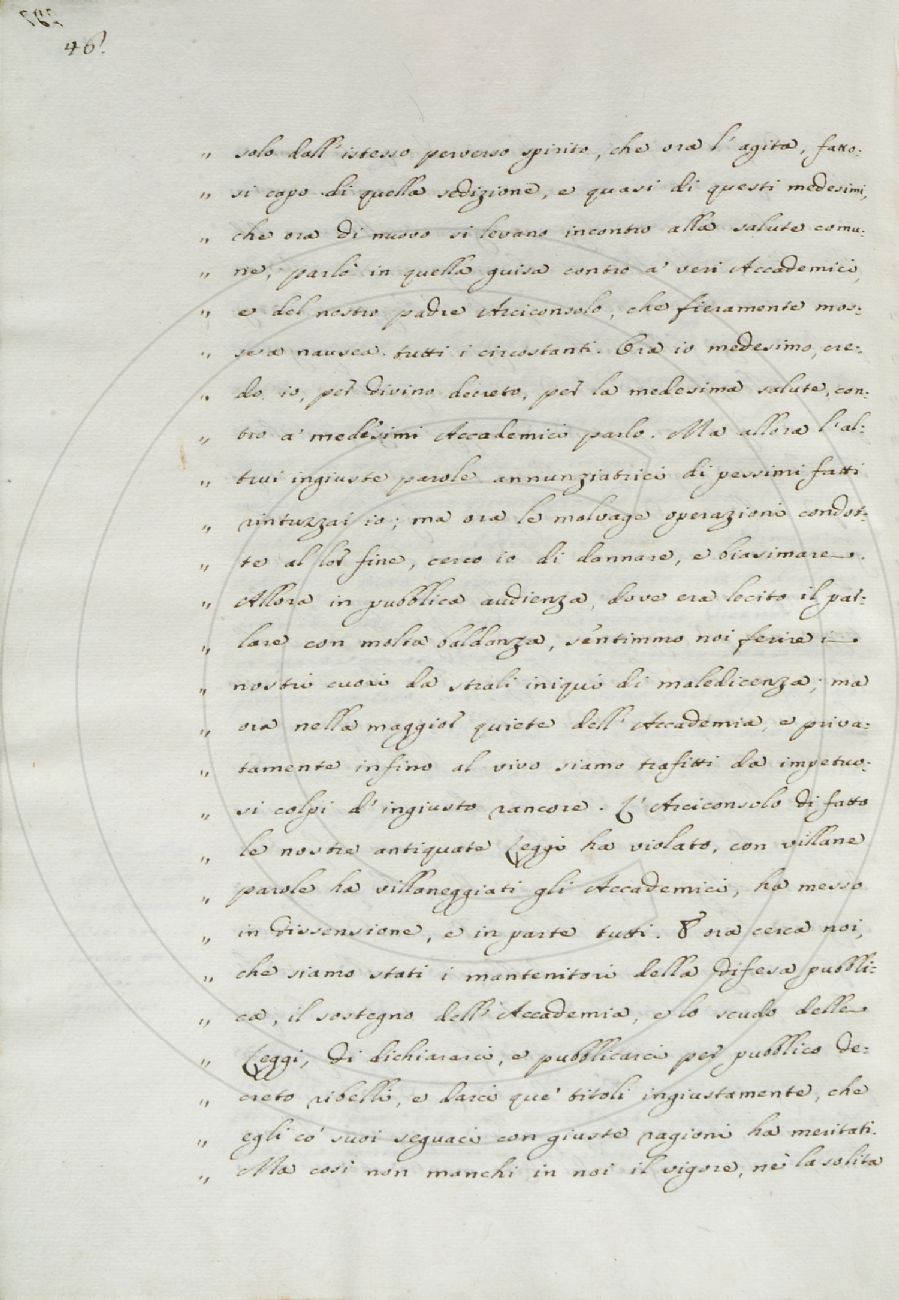 46.
„ solo dall' istesso perverso spirito, che ora l' agita, fatto-
„ si capo di quella sedizione, e quasi di questi medesimi,
„ che ora di nuovo si levano incontro alla salute comu-
„ ne, parlò in quella guisa contro a' veri Accademici,
„ e del nostro padre Arciconsolo, che fieramente mos-
„ sera nausea tutti i circostanti. Ora io medesimo, cre-
„ do io, per divino decreto, per la medesima salute, con-
„ tro a' medesimi Accademici parlo. Ma allora l' al-
„ trui ingiuste parole annunziatrici di pessimi fatti
„ rintuzzai io; ma ora le malvage operazioni condot-
„ te al lor fine, cerco io di dannare, e biasimare.
„ Allora in pubblica audienza, dove era lecito il par-
„ lare con molta baldanza, sentimmo noi ferire i
„ nostri cuori da strali iniqui di maledicenza; ma
„ ora nella maggior quiete dell' Accademia, e priva-
„ tamente infino al vivo siamo trafitti da impetuo-
„ si colpi d' ingiusto rancore. L' Arciconsolo di fatto
„ le nostre antiquate Leggi ha violato, con villane
„ parole ha villaneggiati gli Accademici, ha messo
„ in dissensione, e in parte tutti. E ora cerca noi,
„ che siamo stati i mantenitori della difesa pubbli-
„ ca, il sostegno dell' Accademia, e lo scudo delle
„ Leggi, di dichiararci, e pubblicarci per pubblico de-
„ creto ribelli, e darci que' titoli ingiustamente, che
„ egli co' suoi seguaci con giuste ragioni ha meritati.
„ Ma così non manchi in noi il vigore, nè la solita